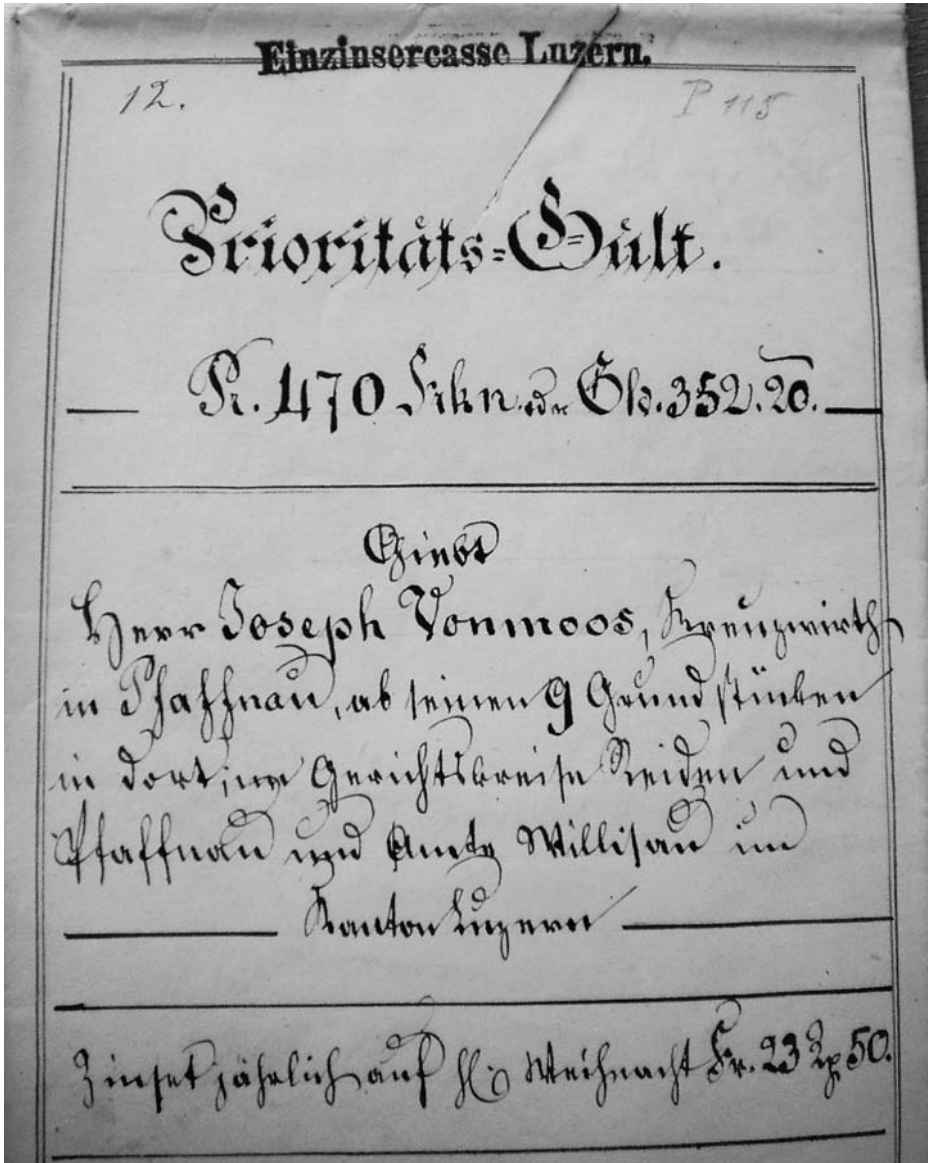 Einzinsercasse Luzern.
12. P 115
Prioritäts=Gült.
Pr. 470 Frkn. odr Gl. 352. 20.
Giebt
Herr Joseph Vonmoos, Kreuzwirth
in Pfaffnau, ab seinen 9 Grundstücken
in dort, Gerichtskreise Reiden und
Pfaffnau und Amte Willisau im
Kanton Luzern
Zinset jährlich auf hl. Weihnacht Fr. 23 Rp. 50.